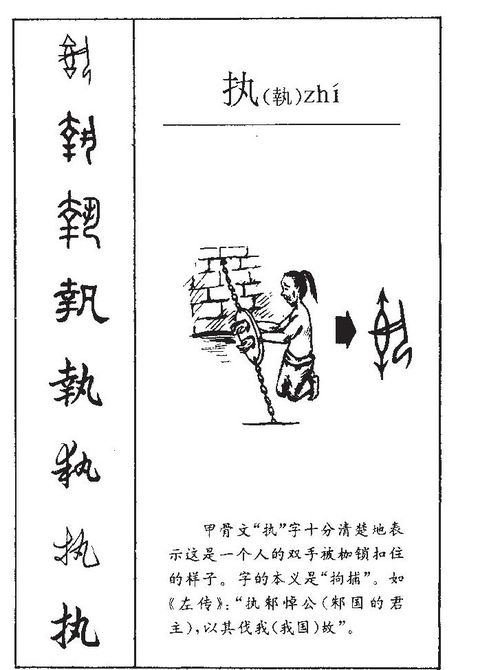 执(執)zhí
甲骨文“执”字十分清楚地表
示这是一个人的双手被枷锁扣住
的样子。字的本义是“拘捕”。如
《左传》:“执邾悼公(邾国的君
主),以其伐我(我国)故”。
執
執
執
執
執
执
执